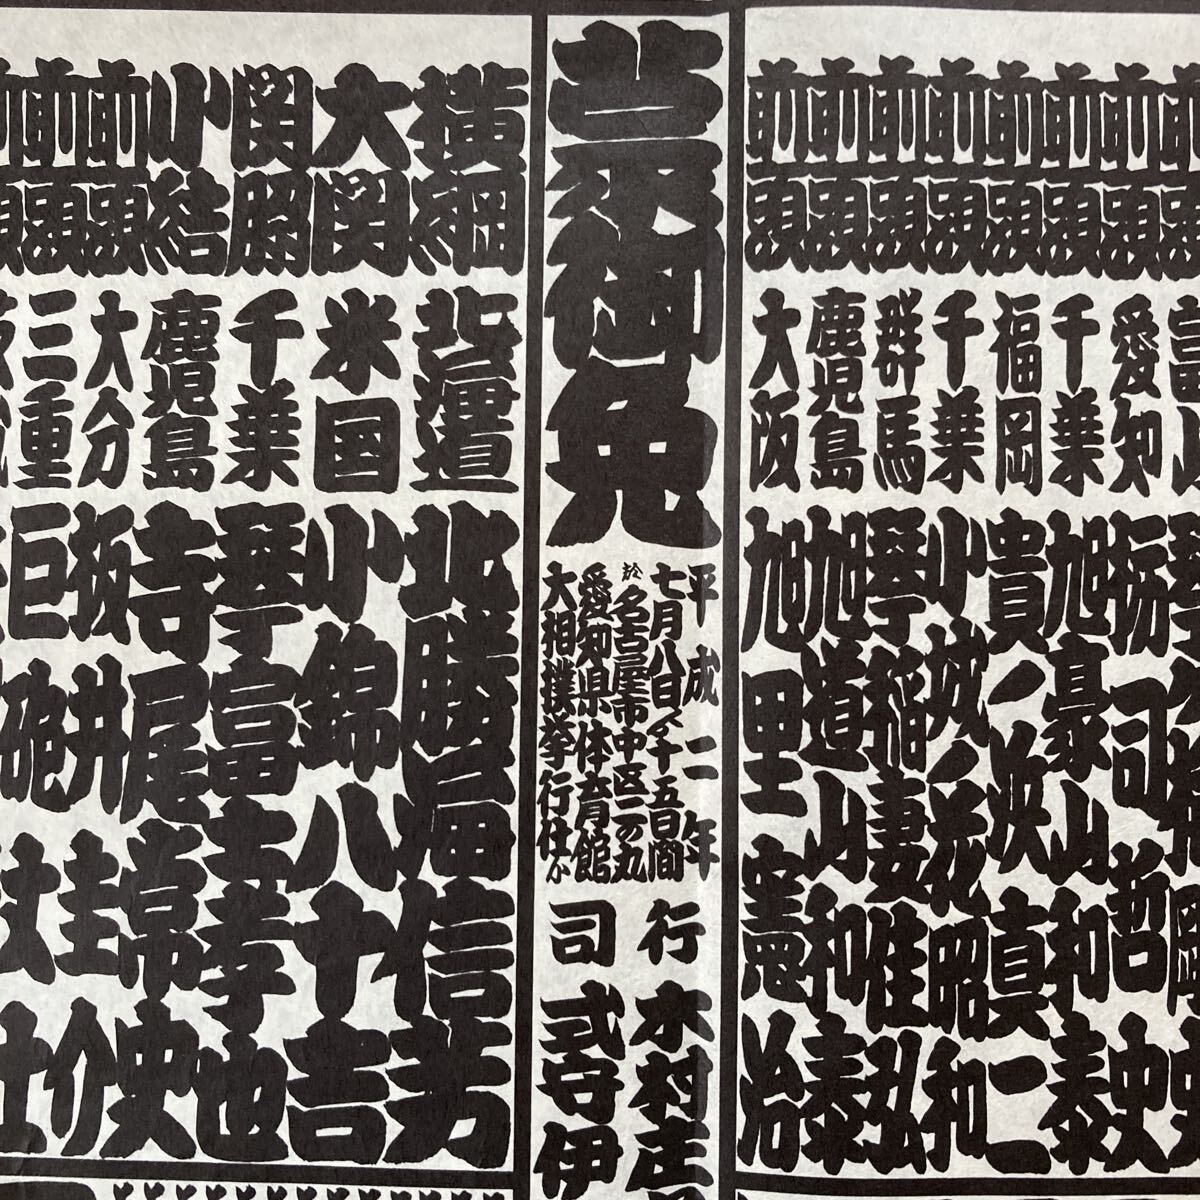 前頭 富山 琴ヶ梅剛史
前頭 愛知 栃司哲史
前頭 千葉 旭豪山和泰
前頭 福岡 貴ノ浜真二
前頭 千葉 小城ノ花昭和
前頭 群馬 琴稲妻佳弘
前頭 鹿児島 旭道山和泰
前頭 大阪 旭里憲治
蒙御免
平成二年
七月八日ヨリ十五日間
於名古屋市中区二の丸
愛知県体育館
大相撲挙行仕候
行司
木村庄
式守伊
横綱 北海道 北勝海信芳
大関 米国 小錦八十吉
関脇 千葉 琴富士孝也
小結 鹿児島 寺尾常史
前頭 大分 板井圭介
前頭 三重 巨砲丈士